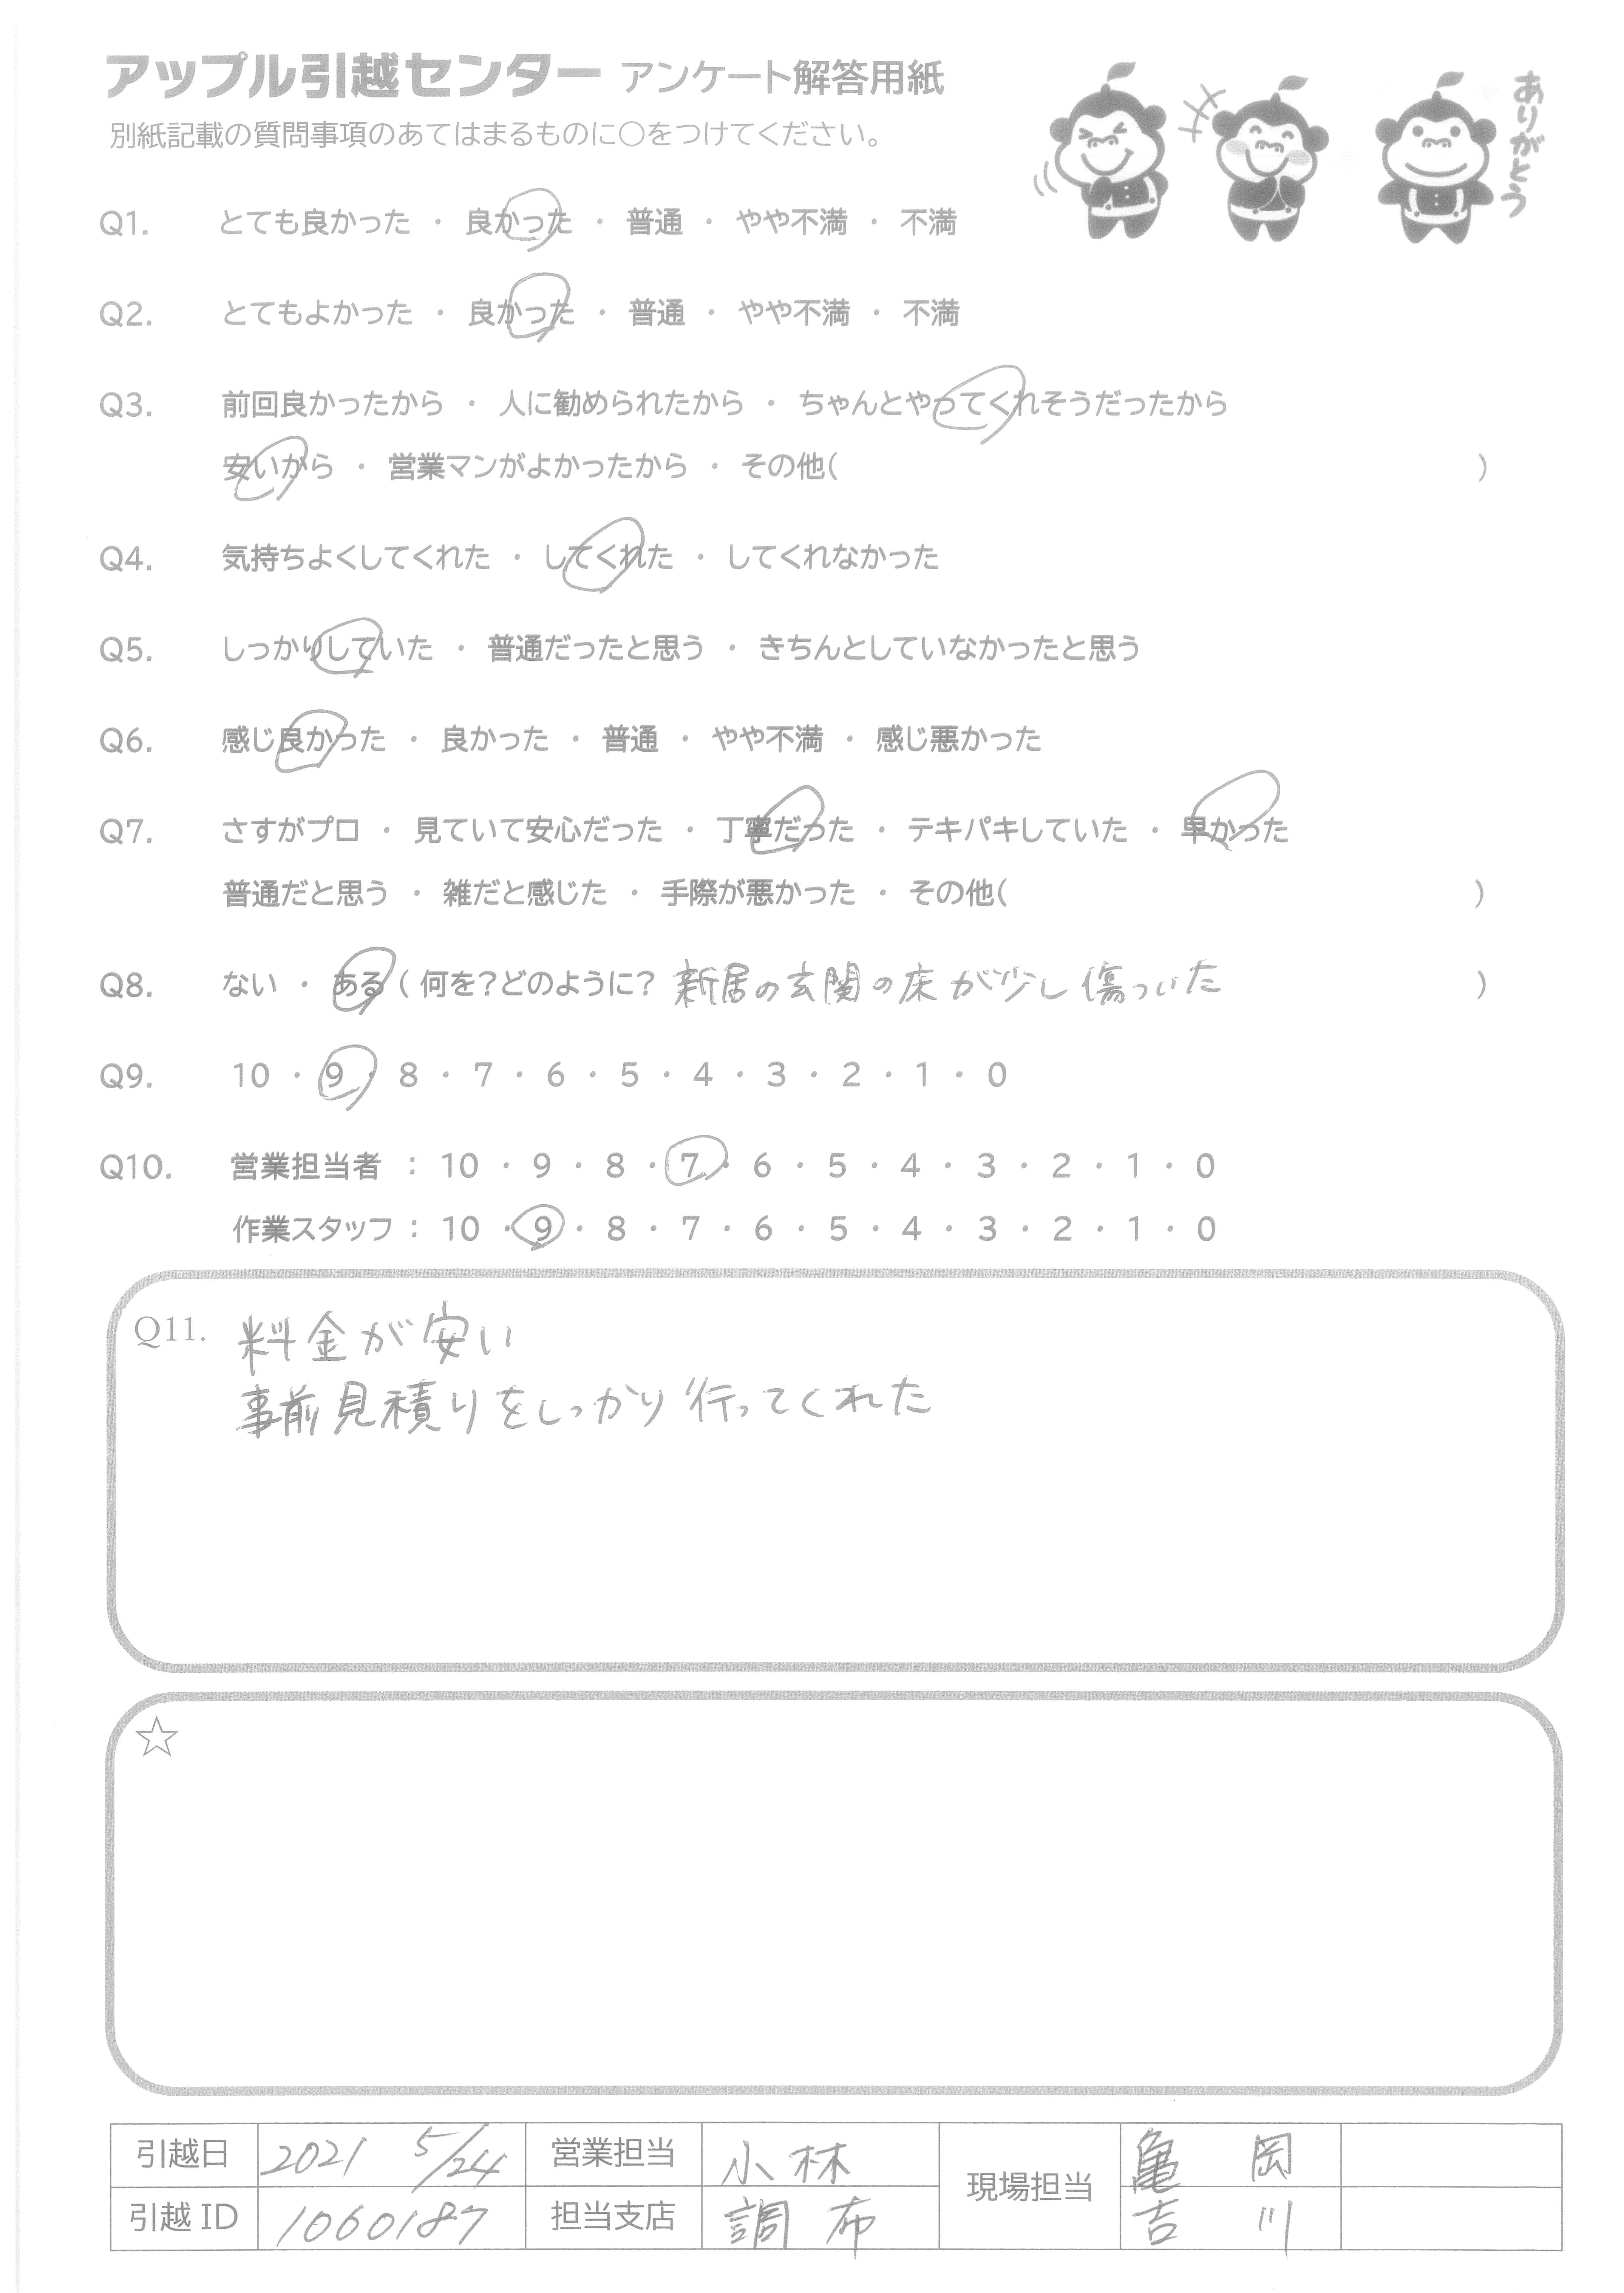 アップル引越センター アンケート解答用紙
ありがとう
別紙記載の質問事項のあてはまるものに〇をつけてください。
Q1. とても良かった ・ 良かった ・ 普通 ・ やや不満 ・ 不満
Q2. とてもよかった ・ 良かった ・ 普通 ・ やや不満 ・ 不満
Q3. 前回良かったから ・ 人に勧められたから ・ ちゃんとやってくれそうだったから
安いから ・ 営業マンがよかったから ・ その他( )
Q4. 気持ちよくしてくれた ・ してくれた ・ してくれなかった
Q5. しっかりしていた ・ 普通だったと思う ・ きちんとしていなかったと思う
Q6. 感じ良かった ・ 良かった ・ 普通 ・ やや不満 ・ 感じ悪かった
Q7. さすがプロ ・ 見ていて安心だった ・ 丁寧だった ・ テキパキしていた ・ 早かった
普通だと思う ・ 雑だと感じた ・ 手際が悪かった ・ その他( )
Q8. ない ・ ある ( 何を?どのように? 新居の玄関の床が少し傷ついた )
Q9. 10 ・ 9 ・ 8 ・ 7 ・ 6 ・ 5 ・ 4 ・ 3 ・ 2 ・ 1 ・ 0
Q10. 営業担当者 : 10 ・ 9 ・ 8 ・ 7 ・ 6 ・ 5 ・ 4 ・ 3 ・ 2 ・ 1 ・ 0
作業スタッフ : 10 ・ 9 ・ 8 ・ 7 ・ 6 ・ 5 ・ 4 ・ 3 ・ 2 ・ 1 ・ 0
Q11. 料金が安い
事前見積りをしっかり行ってくれた
☆
引越日 2021 5/24 営業担当 小林 現場担当 亀岡
引越 ID 1060187 担当支店 調布 吉川